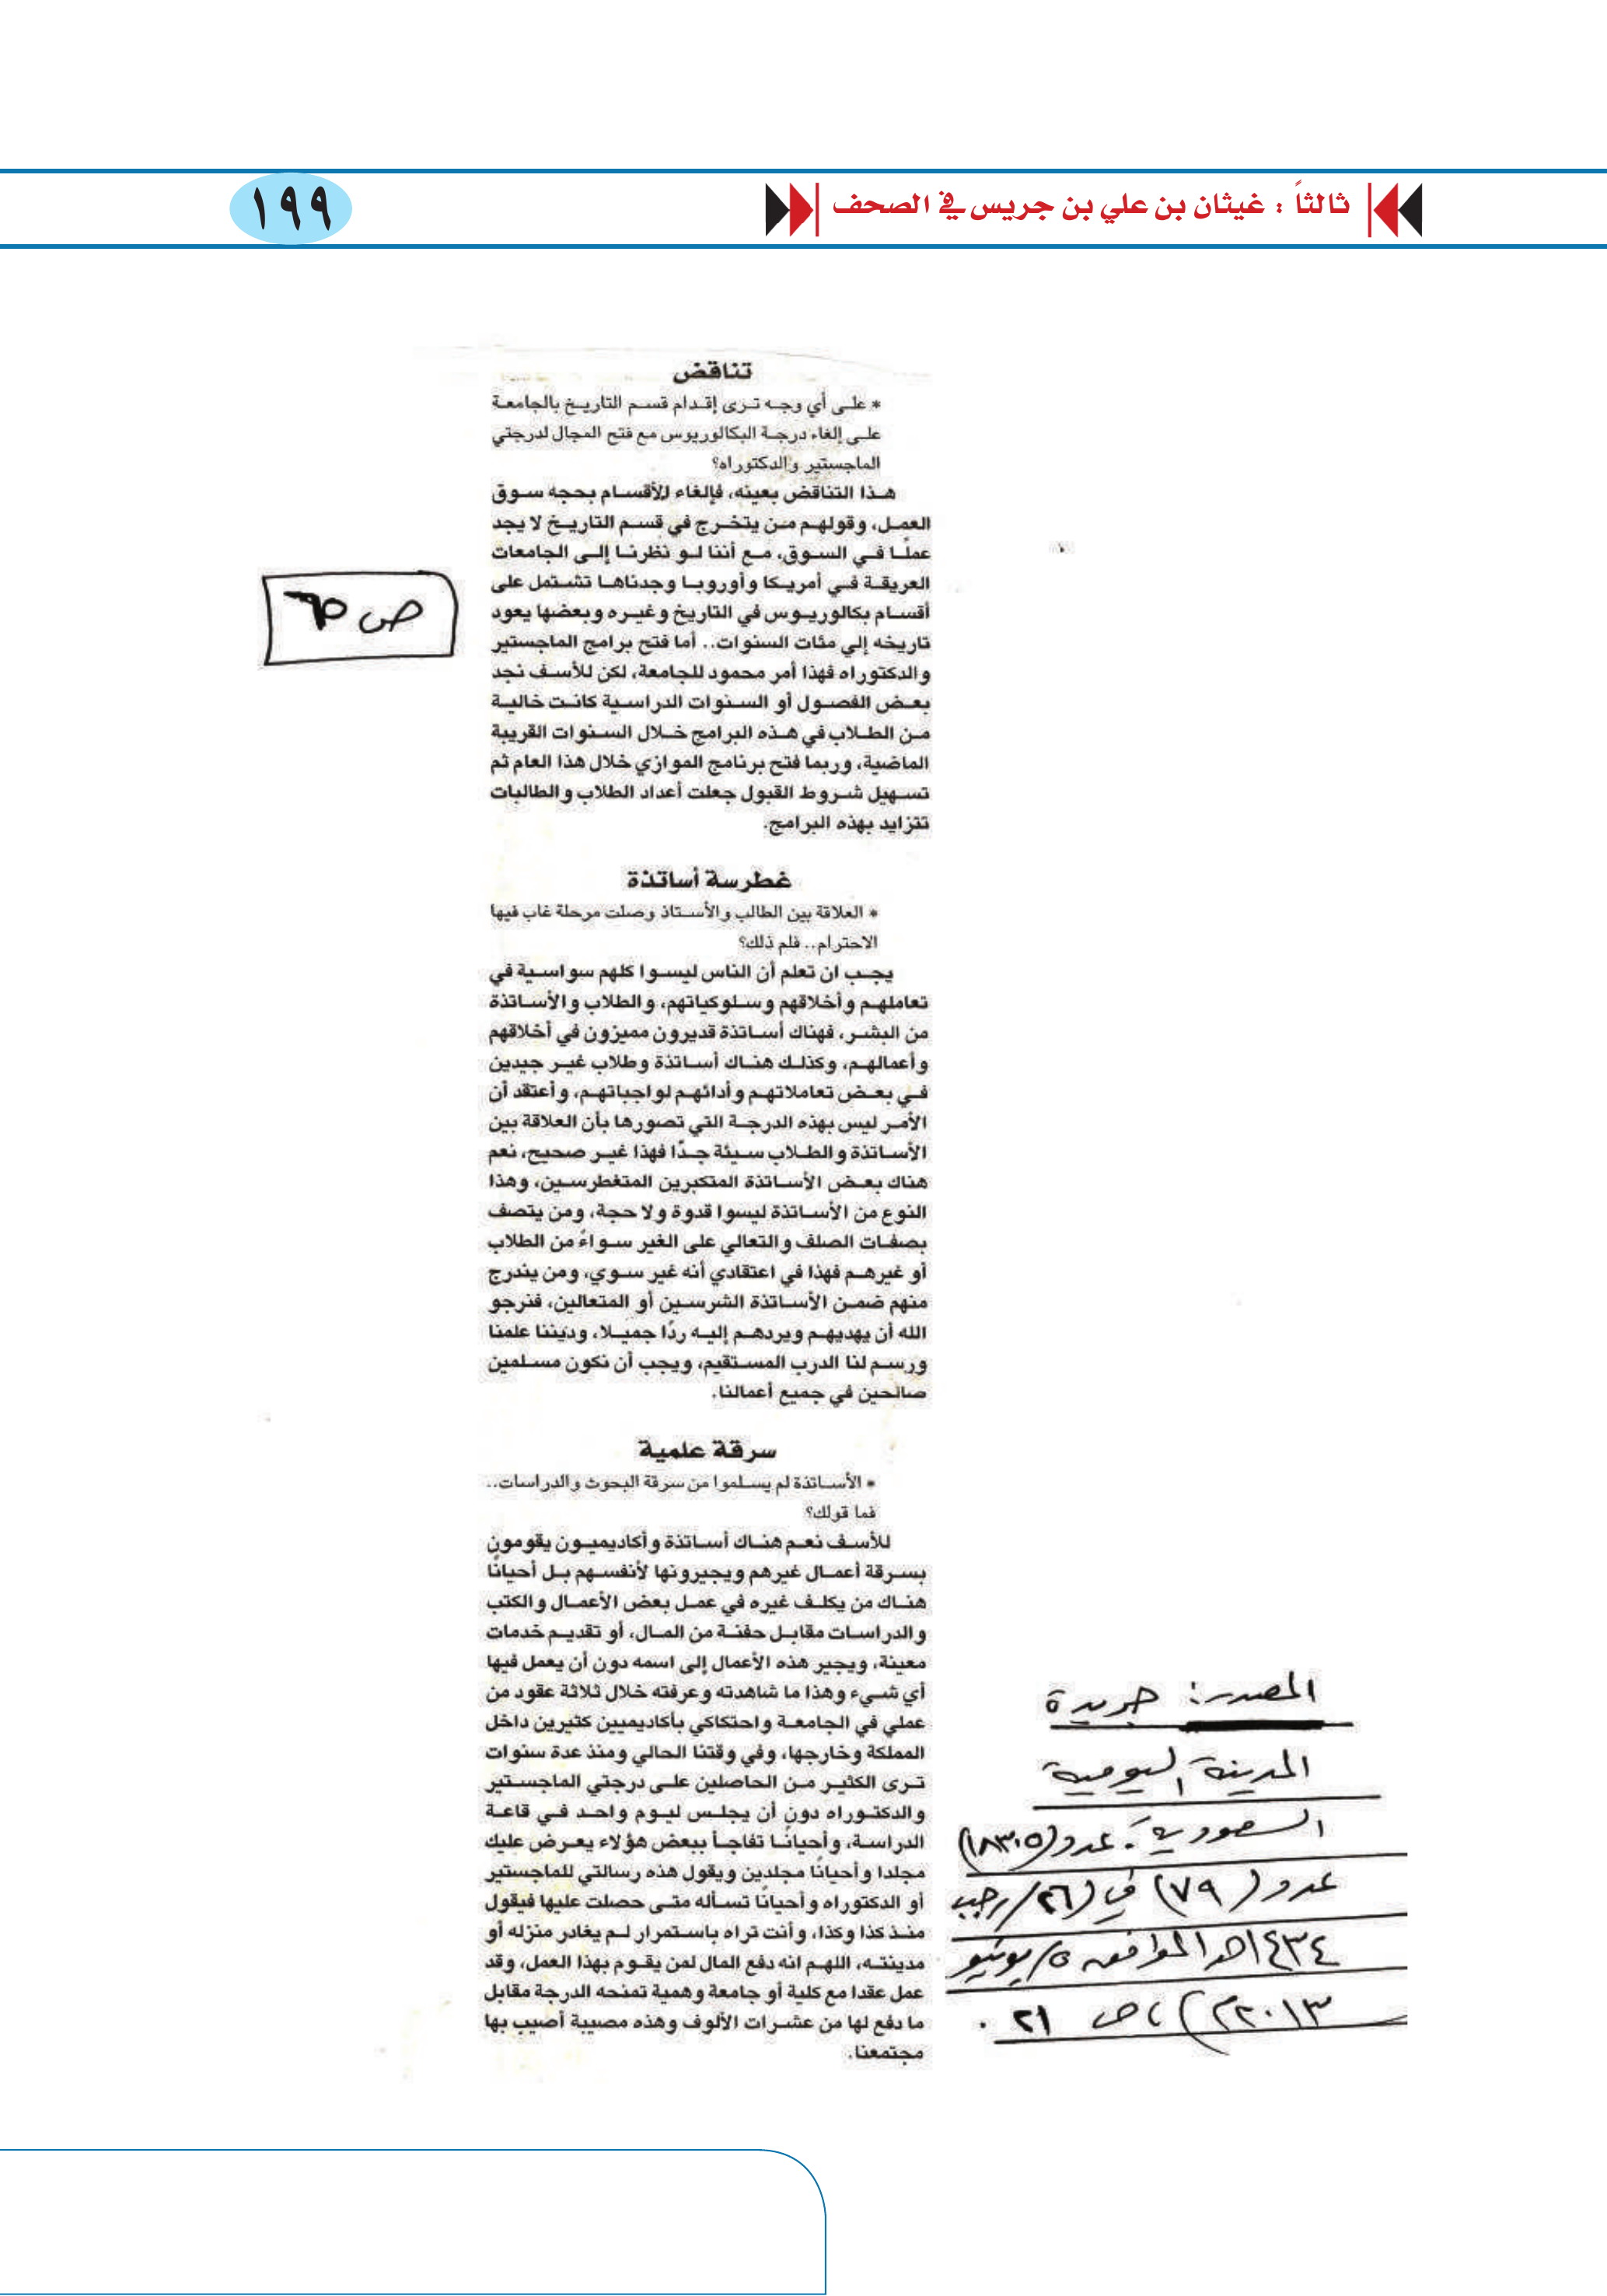 ثالثاً : غيثان بن علي بن جريس في الصحف
١٩٩
تناقض
* على أي وجه ترى إقدام قسم التاريخ بالجامعة
على إلغاء درجة البكالوريوس مع فتح المجال لدرجتي
الماجستير والدكتوراه؟
هذا التناقض بعينه، فإلغاء الأقسام بحجه سوق
العمل، وقولهم من يتخرج في قسم التاريخ لا يجد
عملًا في السوق، مع أننا لو نظرنا إلى الجامعات
العريقة في أمريكا وأوروبا وجدناها تشتمل على
أقسام بكالوريوس في التاريخ وغيره وبعضها يعود
تاريخه إلي مئات السنوات.. أما فتح برامج الماجستير
والدكتوراه فهذا أمر محمود للجامعة، لكن للأسف نجد
بعض الفصول أو السنوات الدراسية كانت خالية
من الطلاب في هذه البرامج خلال السنوات القريبة
الماضية، وربما فتح برنامج الموازي خلال هذا العام ثم
تسهيل شروط القبول جعلت أعداد الطلاب والطالبات
تتزايد بهذه البرامج.
غطرسة أساتذة
* العلاقة بين الطالب والأستاذ وصلت مرحلة غاب فيها
الاحترام.. فلم ذلك؟
يجب ان تعلم أن الناس ليسوا كلهم سواسية في
تعاملهم وأخلاقهم وسلوكياتهم، والطلاب والأساتذة
من البشر، فهناك أساتذة قديرون مميزون في أخلاقهم
وأعمالهم، وكذلك هناك أساتذة وطلاب غير جيدين
في بعض تعاملاتهم وأدائهم لواجباتهم، وأعتقد أن
الأمر ليس بهذه الدرجة التي تصورها بأن العلاقة بين
الأساتذة والطلاب سيئة جدًا فهذا غير صحيح، نعم
هناك بعض الأساتذة المتكبرين المتغطرسين، وهذا
النوع من الأساتذة ليسوا قدوة ولا حجة، ومن يتصف
بصفات الصلف والتعالي على الغير سواءً من الطلاب
أو غيرهم فهذا في اعتقادي أنه غير سوي، ومن يندرج
منهم ضمن الأساتذة الشرسين أو المتعالين، فنرجو
الله أن يهديهم ويردهم إليه ردًا جميلا، وديننا علمنا
ورسم لنا الدرب المستقيم، ويجب أن نكون مسلمين
صالحين في جميع أعمالنا.
سرقة علمية
* الأساتذة لم يسلموا من سرقة البحوث والدراسات..
فما قولك؟
للأسف نعم هناك أساتذة وأكاديميون يقومون
بسرقة أعمال غيرهم ويجيرونها لأنفسهم بل أحيانًا
هناك من يكلف غيره في عمل بعض الأعمال والكتب
والدراسات مقابل حفنة من المال، أو تقديم خدمات
معينة، ويجير هذه الأعمال إلى اسمه دون أن يعمل فيها
أي شيء وهذا ما شاهدته وعرفته خلال ثلاثة عقود من
عملي في الجامعة واحتكاكي بأكاديميين كثيرين داخل
المملكة وخارجها، وفي وقتنا الحالي ومنذ عدة سنوات
ترى الكثير من الحاصلين على درجتي الماجستير
والدكتوراه دون أن يجلس ليوم واحد في قاعة
الدراسة، وأحيانًا تفاجأ ببعض هؤلاء يعرض عليك
مجلدا وأحيانًا مجلدين ويقول هذه رسالتي للماجستير
أو الدكتوراه وأحيانًا تسأله متى حصلت عليها فيقول
منذ كذا وكذا، وأنت تراه باستمرار لم يغادر منزله أو
مدينته، اللهم انه دفع المال لمن يقوم بهذا العمل، وقد
عمل عقدا مع كلية أو جامعة وهمية تمنحه الدرجة مقابل
ما دفع لها من عشرات الألوف وهذه مصيبة أصيب بها
مجتمعنا.
المصدر: جريدة
المدينة اليومية
السعودية. عدد (١٨٣٠٥)
عدد (٧٩) في (٢٦/رجب
١٤٣٤هـ الموافق ٥/يونيو
٢٠١٣م)، ص ٢١.